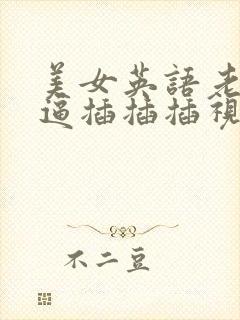 美女英語老
逼插插插視
不二豆